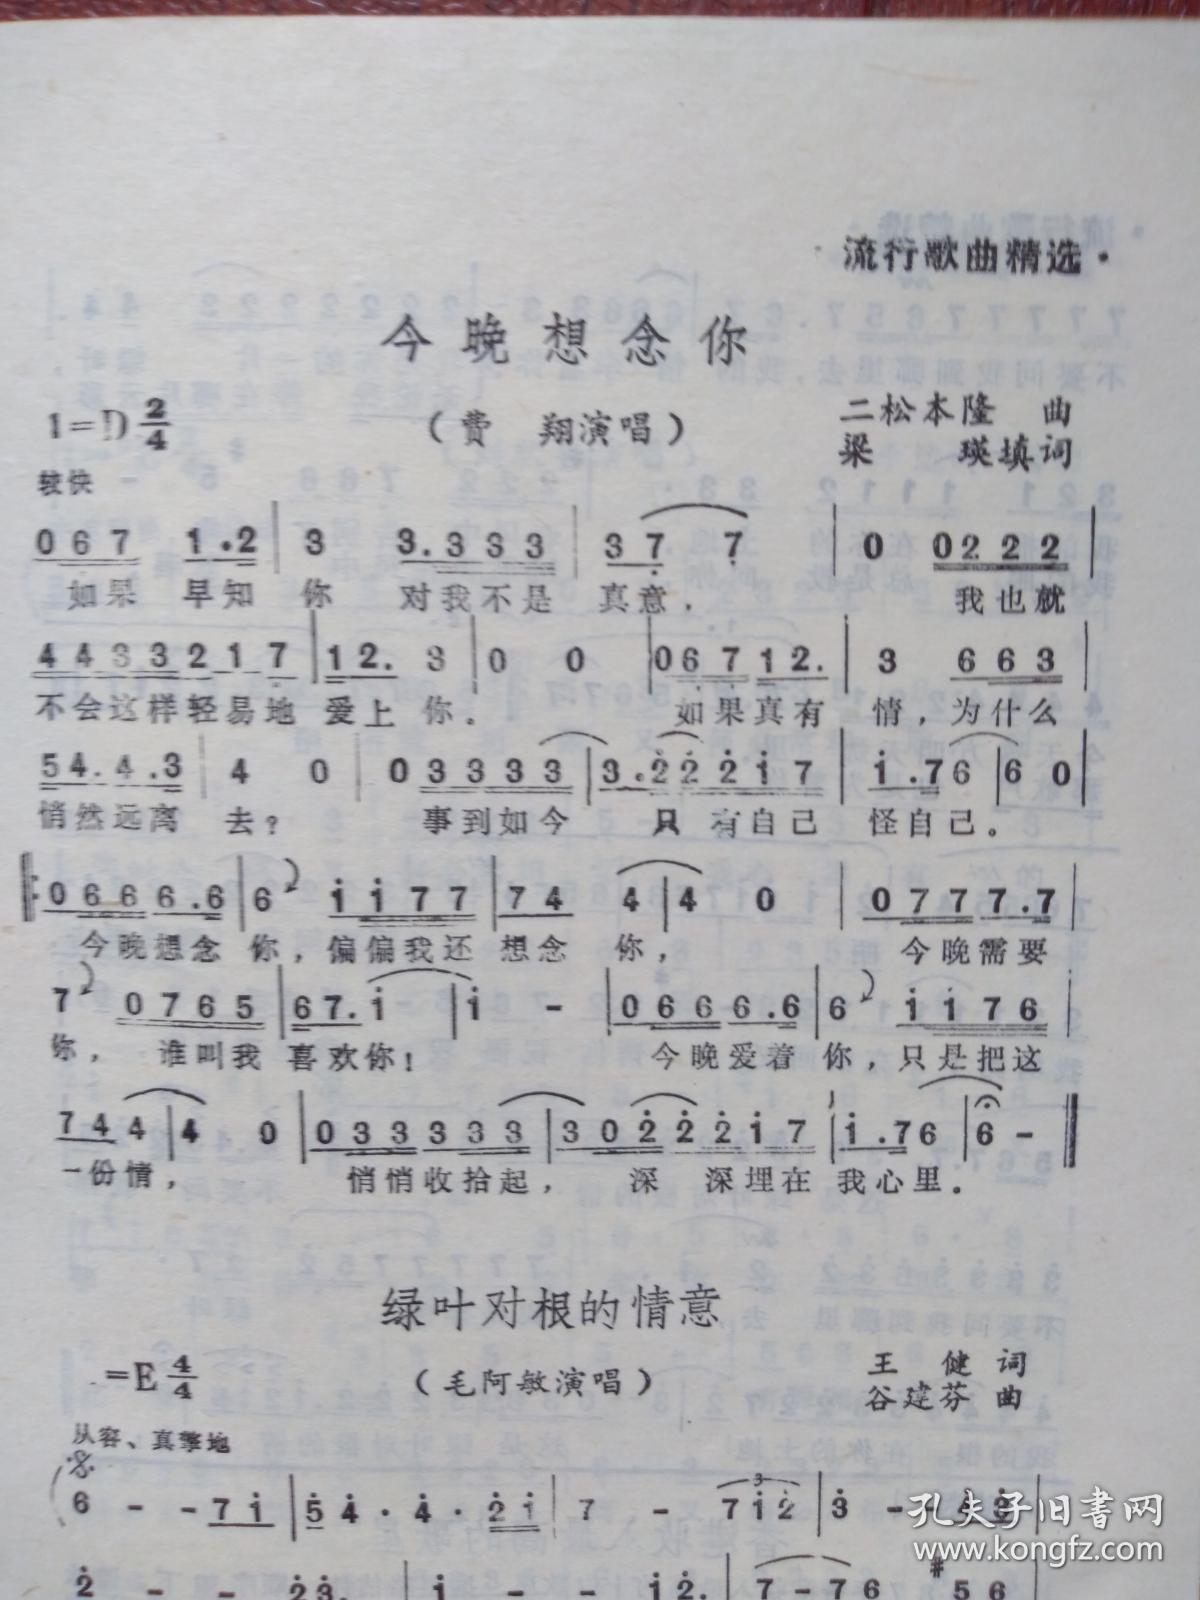 ·流行歌曲精选·
今晚想念你
1=D 2/4
（费 翔演唱）
二松本隆 曲
梁 瑛填词
较快
0 6 7 1.2 | 3 3.3 3 3 | 3 7 7 | 0 0 2 2 2 |
如果 早知 你 对我不是 真意， 我也就
4 4 3 3 2 1 7 | 1 2. 3 | 0 0 | 0 6 7 1 2. | 3 6 6 3
不会这样轻易地 爱上 你。 如果真有 情，为什么
5 4. 4.3 | 4 0 | 0 3 3 3 3 | 3.2 2 2 1 7 | 1.7 6 | 6 0 |
悄然远离 去？ 事到如今 只 有自己 怪自己。
0 6 6 6.6 | 6 1 1 7 7 | 7 4 4 | 4 0 | 0 7 7 7.7 |
今晚想念 你，偏偏我还 想念 你， 今晚需要
7 0 7 6 5 | 6 7. 1 | 1 - | 0 6 6 6 6.6 | 6 1 1 7 6 |
你， 谁叫我 喜欢你！ 今晚爱着 你，只是把这
7 4 4 | 4 0 | 0 3 3 3 3 3 | 3 0 2 2 2 1 7 | 1.7 6 | 6 -
一份情， 悄悄收拾起， 深 深埋在 我心里。
绿叶对根的情意
=E 4/4
（毛阿敏演唱）
王 健 词
谷建芬 曲
从容、真挚地
6 - - 7 1 | 5 4 · 4 · 2 1 | 7 - 7 1 2 | 3 - - 4 3
2 - - 2 3. 1 - - 1 2. 7 - 7 6 #5 6
孔夫子旧书网
www.kongfz.com